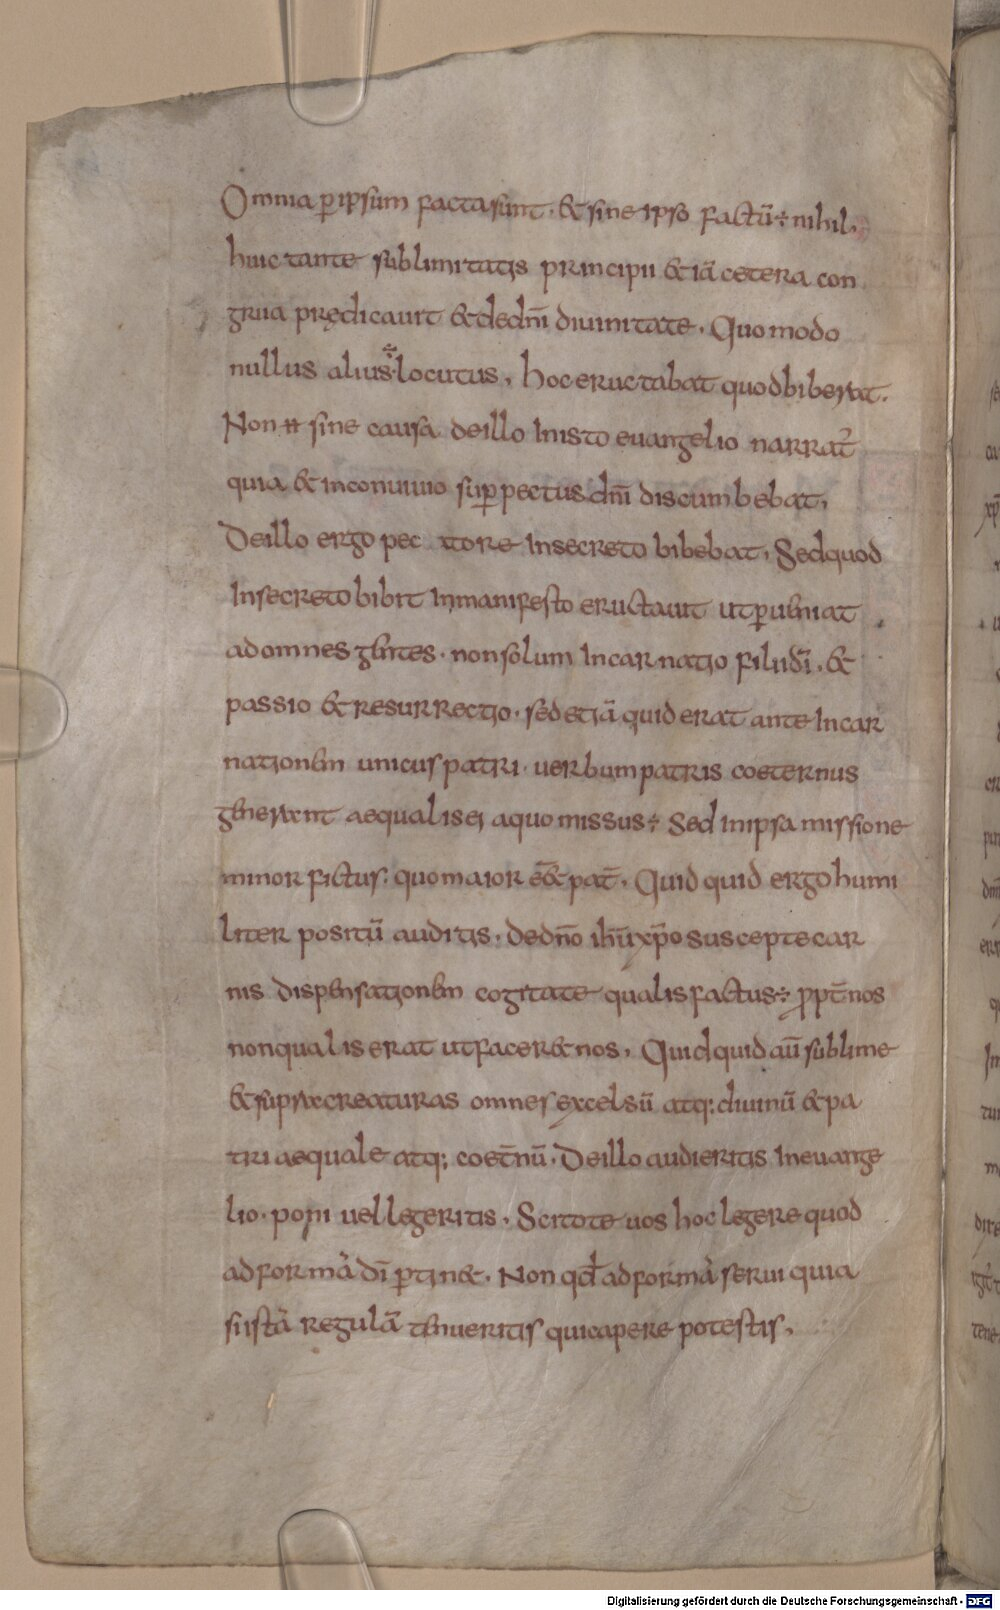 Omnia p̱ ipsum facta sunt · & sine ipso factū ÷ nihil,
huic tante sublimitatis principii & iā cetera con
grua prędicavit & de dn̄i divinitate . Quomodo
nullus alius ÷ locutus , hoc eructabat quod biberat .
Non ħ sine causa de illo in isto euangelio narrat̄
quia & in conuiuio sup̱ pectus dn̄i discumbebat,
De illo ergo pectore in secreto bibebat, Sed quod
in secreto bibit in manifesto eructauit ut p̱ueniat
ad omnes gentes · non solum incarnatio filii dī . &
passio & resurrectio · sed etiā quid erat ante incar
nationem unicus patri · uerbum patris coeternus
generant aequalis ei a quo missus ÷ Sed in ipsa missione
minor fictus · quo maior ē& pat̄ . Quidquid ergo humi
liter positū auditis · de dn̄o ih̄u xp̄o suscepte car
nis dispensationem cogitate qualis factus ÷ ꝓpt̄ nos
non qualis erat ut facer& nos . Quidquid aū sublime
& supra creaturas omnes excelsū atq; diuinū & pa
tri aequale atq; coet̄nū · De illo audieritis in euange
lio · poni uel legeritis . Scitote uos hoc legere quod
ad formā dī p̱tin& . Non qđ ad formā serui quia
si istā regulā tenueritis qui capere potestis ,
Digitalisierung gefördert durch die Deutsche Forschungsgemeinschaft - DFG